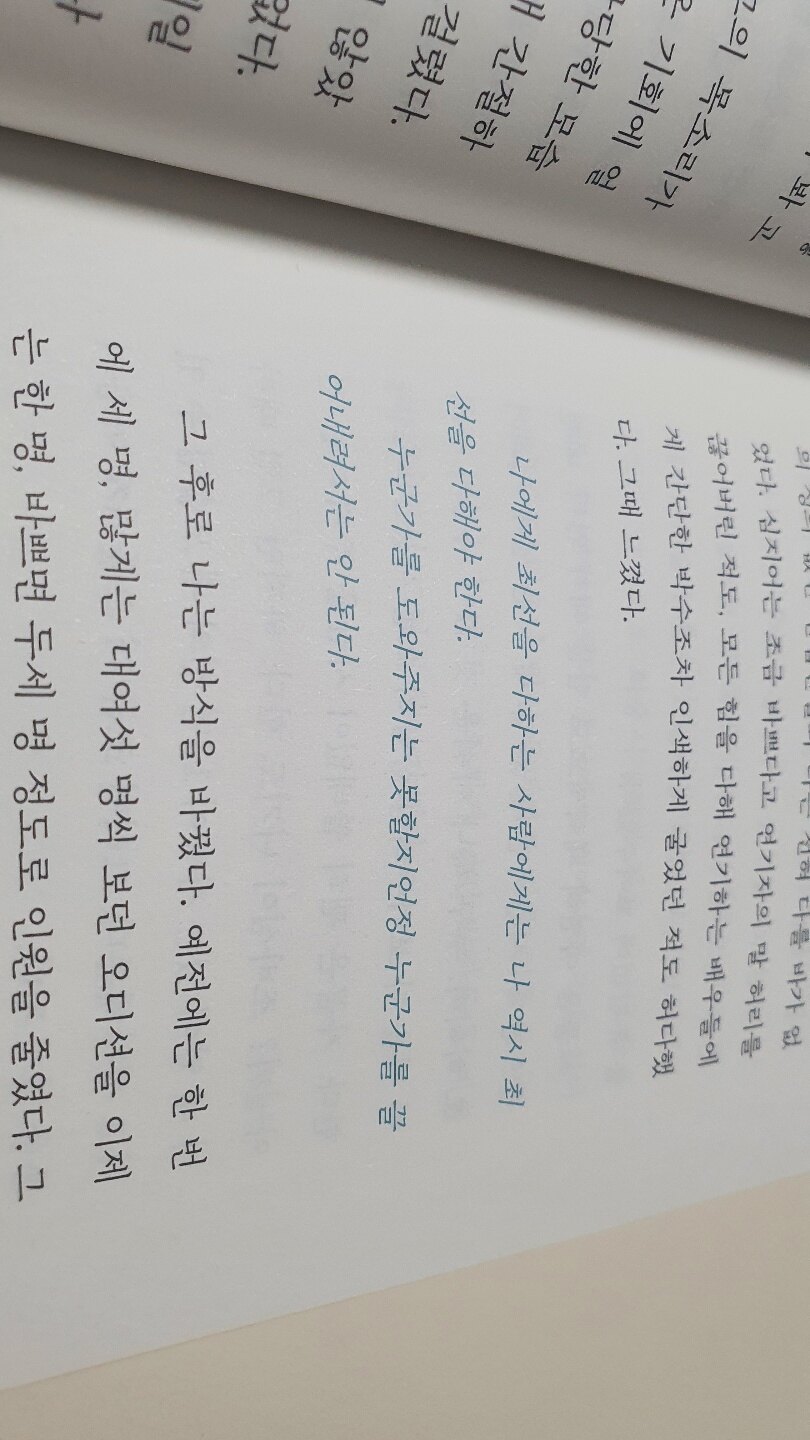 구의 목소리가
은 기회에 얼
당한 모습
간절하
걸렸다.
않았
었다.
었다. 심지어는 조금 바쁘다고 연기자의 말 허리를
끊어버린 적도, 모든 힘을 다해 연기하는 배우들에
게 간단한 박수조차 인색하게 굴었던 적도 허다했
다. 그때 느꼈다.
나에게 최선을 다하는 사람에게는 나 역시 최
선을 다해야 한다.
누군가를 도와주지는 못할지언정 누군가를 끌
어내려서는 안 된다.
그 후로 나는 방식을 바꿨다. 예전에는 한 번
에 세 명, 많게는 대여섯 명씩 보던 오디션을 이제
는 한 명, 바쁘면 두세 명 정도로 인원을 줄였다. 그